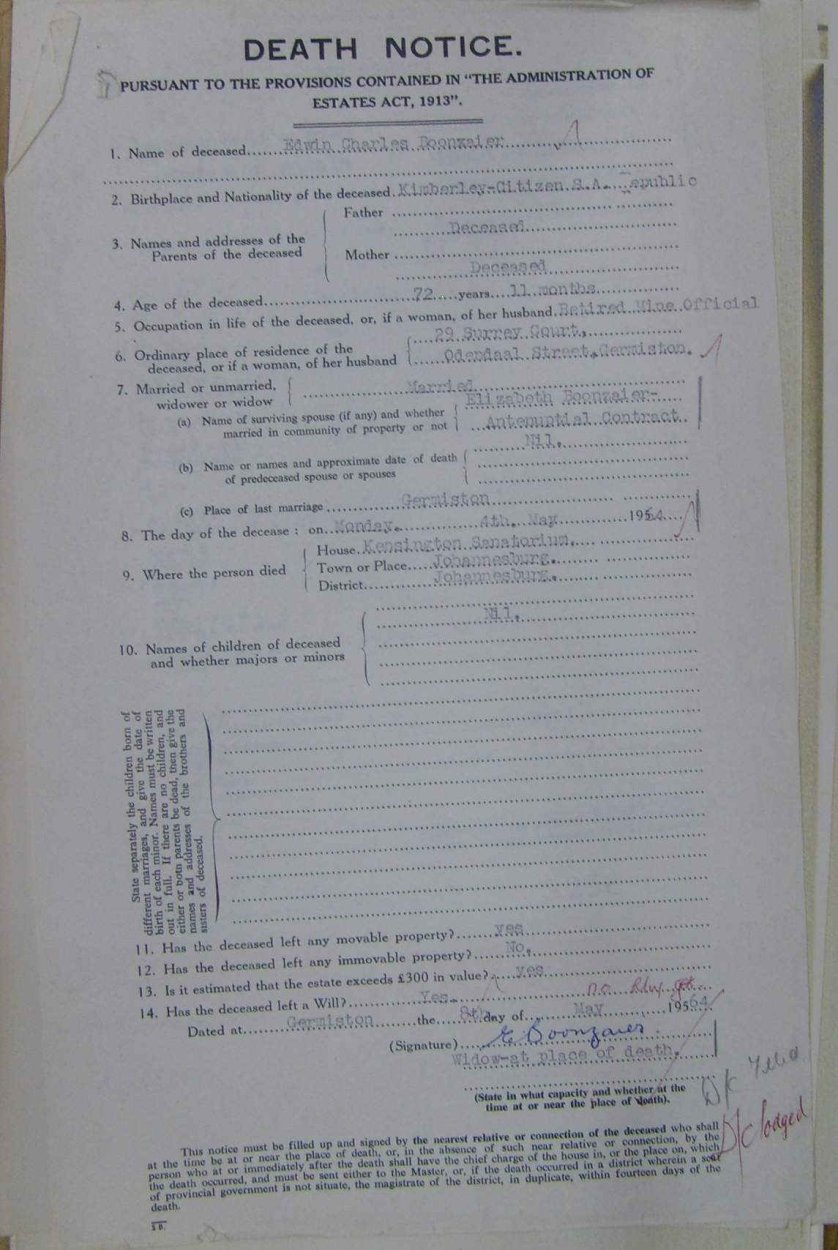 DEATH NOTICE.
PURSUANT TO THE PROVISIONS CONTAINED IN “THE ADMINISTRATION OF
ESTATES ACT, 1913”.
1. Name of deceased Edwin Charles Boonzaier
2. Birthplace and Nationality of the deceased Kimberley-Citizen S.A. Republic
3. Names and addresses of the Parents of the deceased
Father
Deceased
Mother
Deceased
4. Age of the deceased 72 years 11 months
5. Occupation in life of the deceased, or, if a woman, of her husband Retired Mine Official
6. Ordinary place of residence of the deceased, or if a woman, of her husband
29 Surrey Court,
Odendaal Street, Germiston.
7. Married or unmarried, widower or widow
Married
(a) Name of surviving spouse (if any) and whether married in community of property or not
Elizabeth Boonzaier-
Antenuptial Contract
(b) Name or names and approximate date of death of predeceased spouse or spouses
Nil.
(c) Place of last marriage Germiston
8. The day of the decease : on Monday. 4th. May 1964
9. Where the person died
House Kensington Sanatorium.
Town or Place Johannesburg.
District Johannesburg.
10. Names of children of deceased and whether majors or minors
Nil.
State separately the children born of
different marriages, and give the date of
birth of each minor. Names must be written
out in full. If there are no children, and
either or both parents be dead, then give the
names and addresses of the brothers and
sisters of deceased.
11. Has the deceased left any movable property? yes
12. Has the deceased left any immovable property? No.
13. Is it estimated that the estate exceeds £300 in value? yes
14. Has the deceased left a Will? Yes. no
Dated at Germiston the 8th day of May 1964
(Signature) E Boonzaier.
Widow-at place of death.
(State in what capacity and whether at the
time at or near the place of death).
D/C
D/C lodged
This notice must be filled up and signed by the nearest relative or connection of the deceased who shall
at the time be at or near the place of death, or, in the absence of such near relative or connection, by the
person who at or immediately after the death shall have the chief charge of the house in, or the place on, which
the death occurred, and must be sent either to the Master, or, if the death occurred in a district wherein a seat
of provincial government is not situate, the magistrate of the district, in duplicate, within fourteen days of the
death.